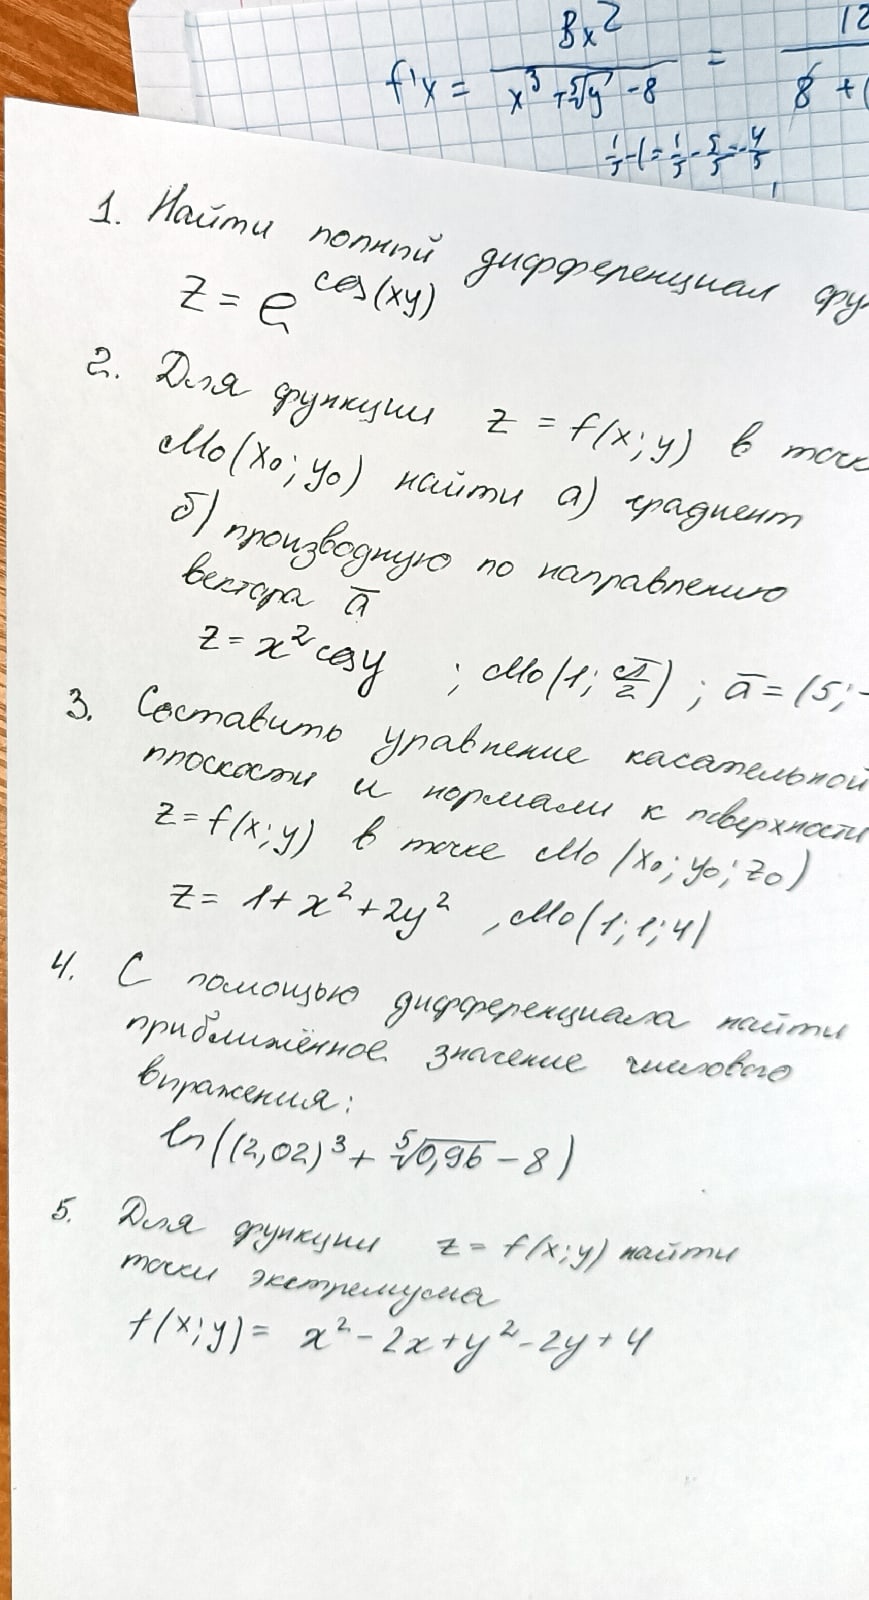 f'x = 3x² / (x³ + ⁵√y - 8) = 12 / 8 + (
1/5 - 1 = 1/5 - 5/5 = -4/5
1. Найти полный дифференциал
z = e^cos(xy)
2. Для функции z = f(x; y) в
Mo(xo; yo) найти а) градиент
б) производную по направлению
вектора a̅
z = x² cosy ; Mo(1; π/2) ; a̅ = (5; -
3. Составить уравнение касательной
плоскости и нормали к поверхности
z = f(x; y) в точке Mo(xo; yo; zo)
z = 1 + x² + 2y² , Mo(1; 1; 4)
4. С помощью дифференциала найти
приближённое значение числового
выражения:
ln((2,02)³ + ⁵√0,96 - 8)
5. Для функции z = f(x; y) найти
точки экстремума
f(x; y) = x² - 2x + y² - 2y + 4